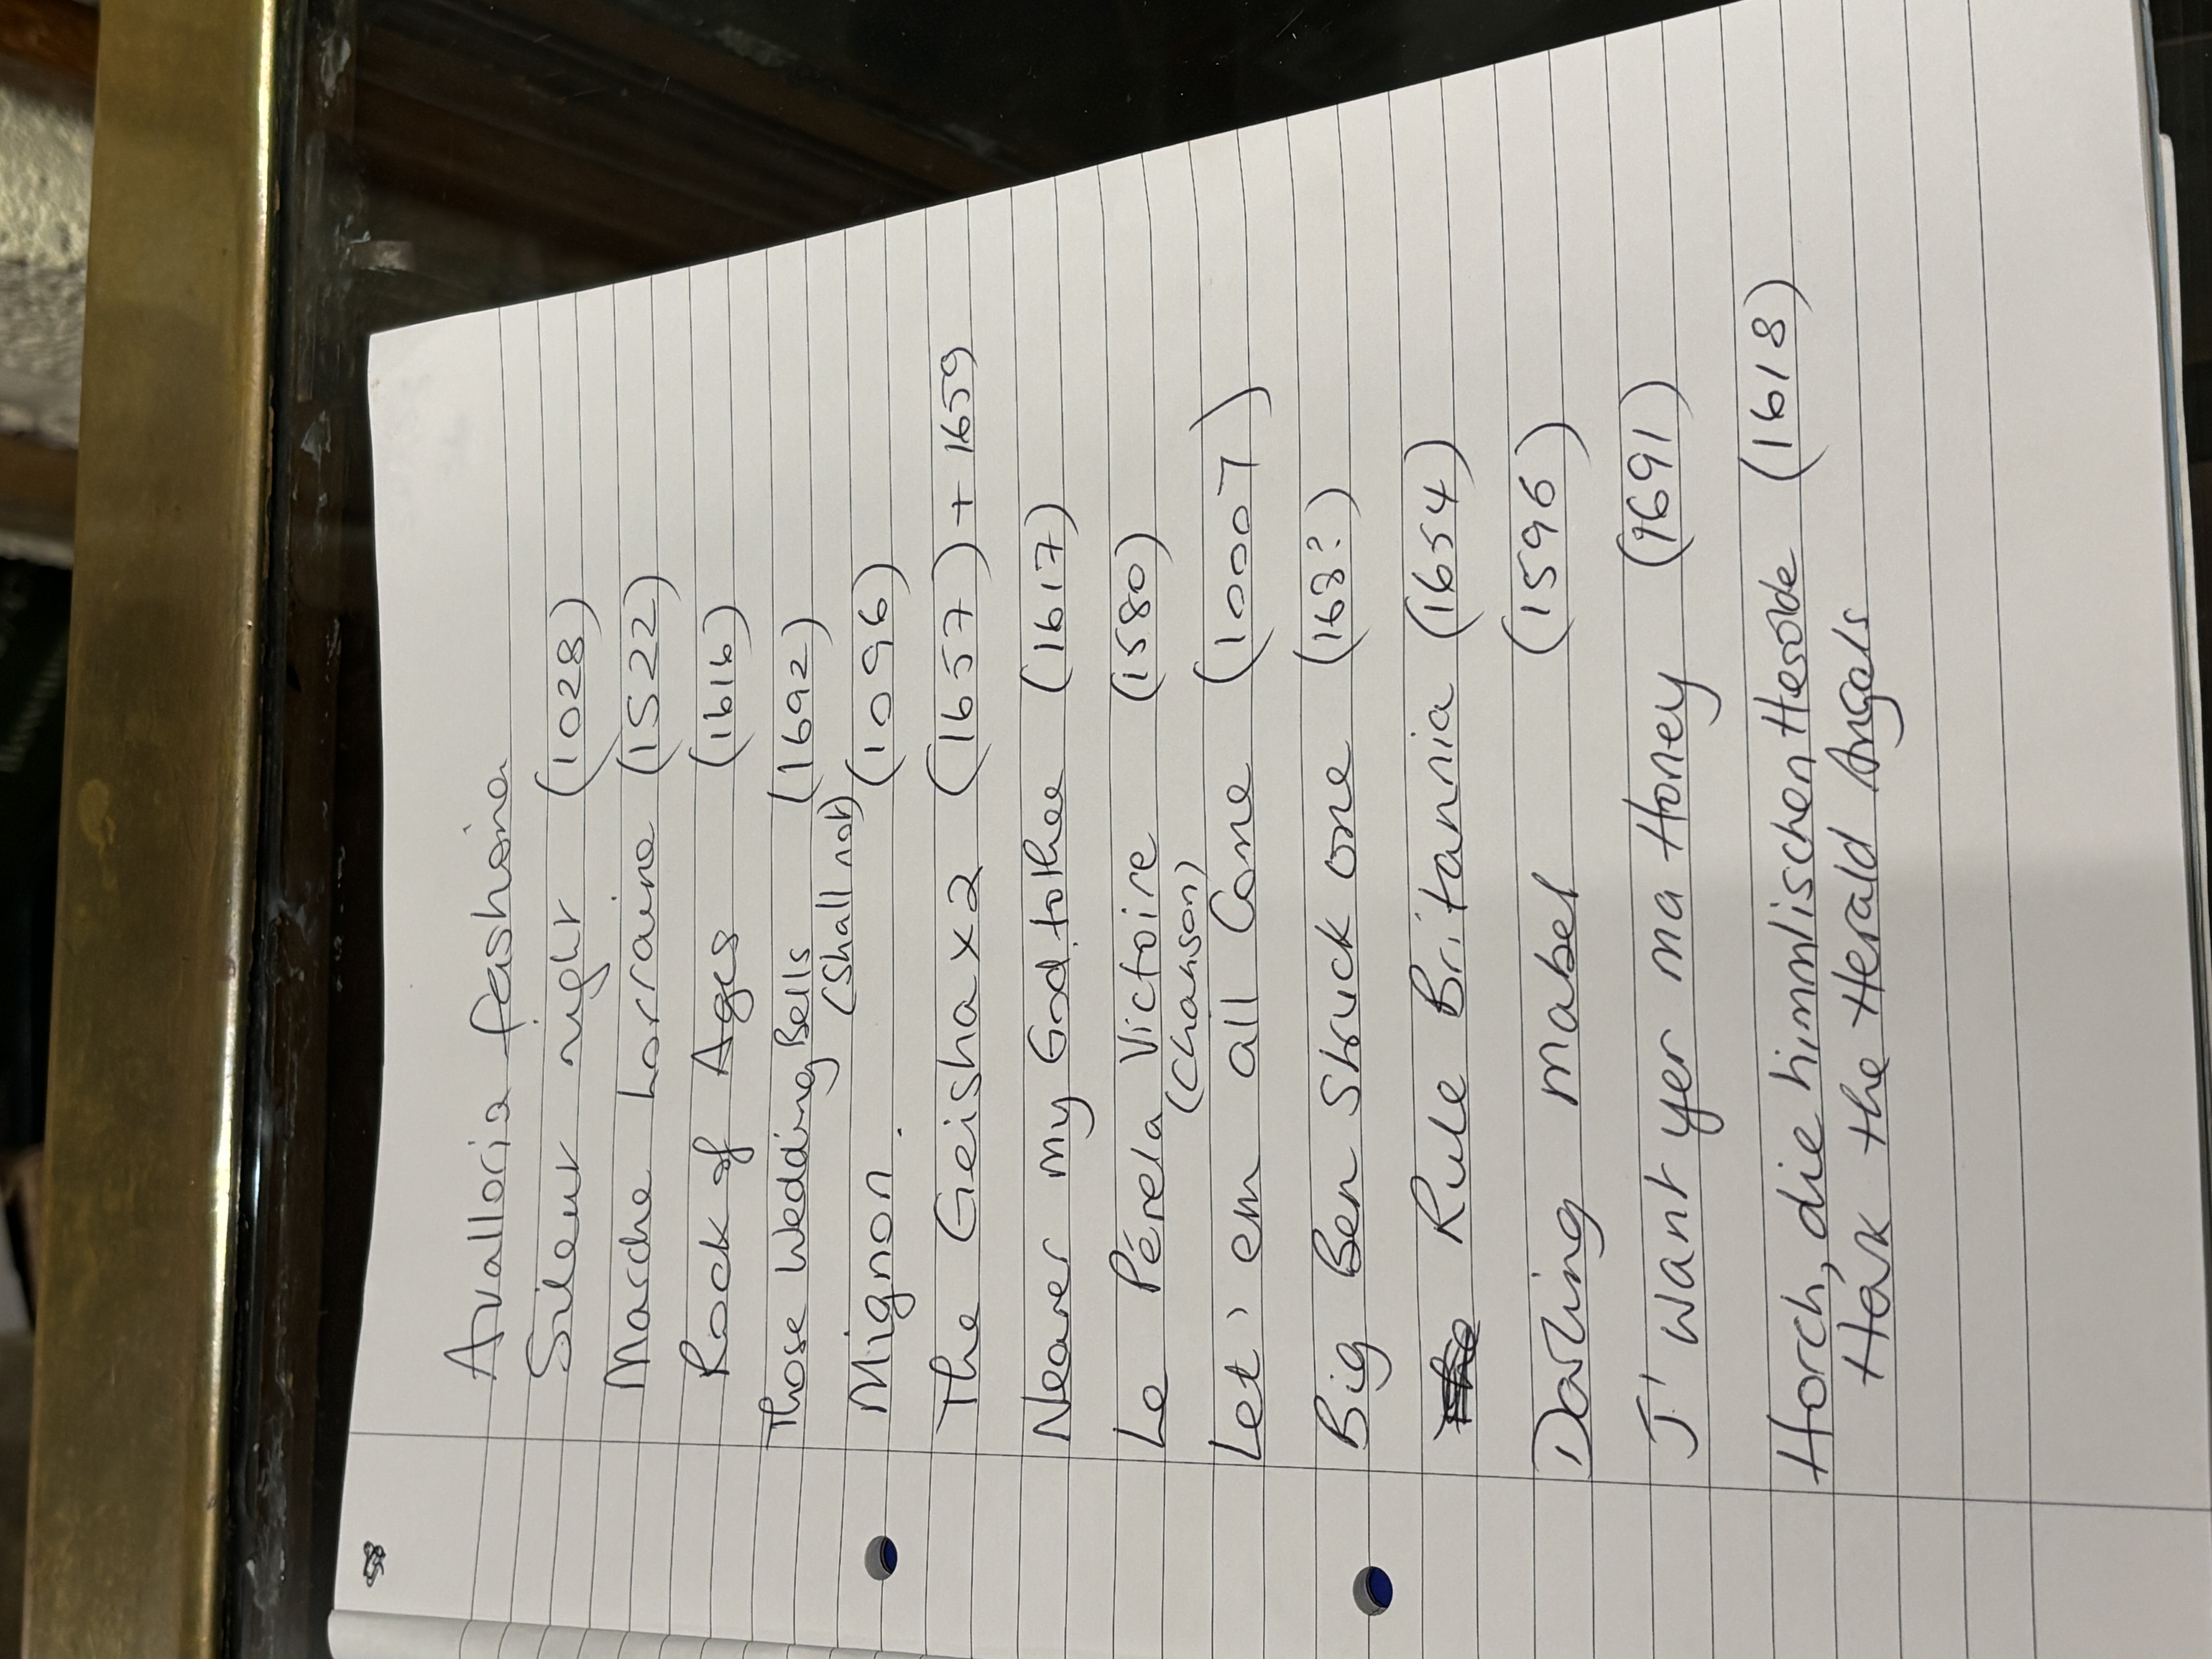 Avalloria fashiona
Silent night (1028)
Marche Lorraine (1522)
Rock of Ages (1616)
Those Wedding Bells (1692)
(Shall not)
Mignon. (1096)
The Geisha x 2 (1657) + 1659
Nearer my God to thee (1617)
Le Pérela Victoire (1580)
(Chanson)
Let 'em all Come (1000T)
Big Ben Struck one (168?)
Rule Britannia (1654)
Darling mabel (1596)
I' want yer ma Honey (1691)
Horch, die himmlischen Hesolde (1618)
Hark the Herald Angels